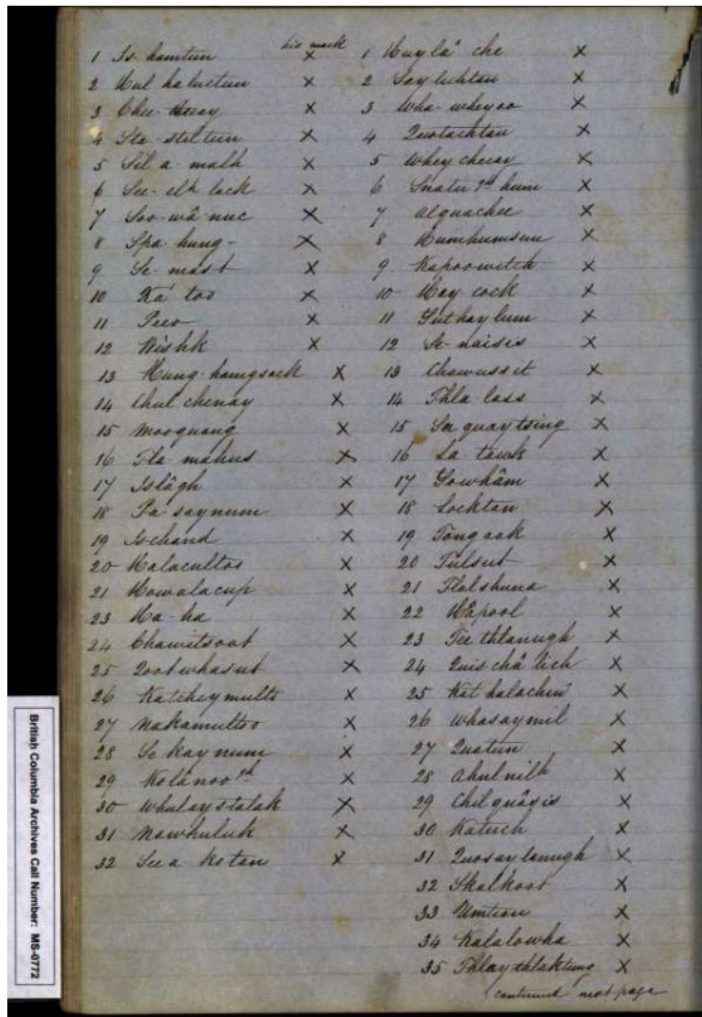 his mark
1 Is hamtun X
2 Hul haluctun X
3 Chee-
4 Sta-stel tun X
5 Sil a-malh X
6 See-elh lock X
7 Soo-wâ-nuc X
8 Spa-hung- X
9 Se-mast X
10 Ka' too X
11 Peeo X
12 Wishk X
13 Hung-hamgsack X
14 Chul chenay X
15 Mooquang X
16 Tla-mahus X
17 Islâgh X
18 Pa-saynum X
19 Ischand X
20 Halacultos X
21 Howalacup X
23 Ha-ha X
24 Chawitsoot X
25 whasut X
26 Katchey mults X
27 Nakamultoo X
28 Se kay num X
29 Kolanoo th X
30 Whulaystalak X
31 Nawhuluk X
32 See a-kotan X
1 Huylâ' che X
2 Soy luhtan X
3 Wha-wheyoo X
4 Quotachtan X
5 Whey cheray X
6 hum X
7 Alquachee X
8 Humhumsun X
9 Kapoowitch X
10 Hay cock X
11 Sut hay lum X
12 Se-naisis X
13 Chawussit X
14 Thla lass X
15 quaytsing X
16 La-tawk X
17 Yowhâm X
18 Locktan X
19 Tongaok X
20 Tulsut X
21 Tlalshuna X
22 Hapool X
23 Tee thlanugh X
24 Quis châ lich X
25 Kat halachun X
26 Whasaymil X
27 Quatun X
28 Ahulnilh X
29 Chilquâsis X
30 Katuch X
31 Quosaylanugh X
32 Skalkoot X
33 Umtion X
34 Kalalowha X
35 Thlaythlaktung X
continued next page
British Columbia Archives Call Number: MS-0772